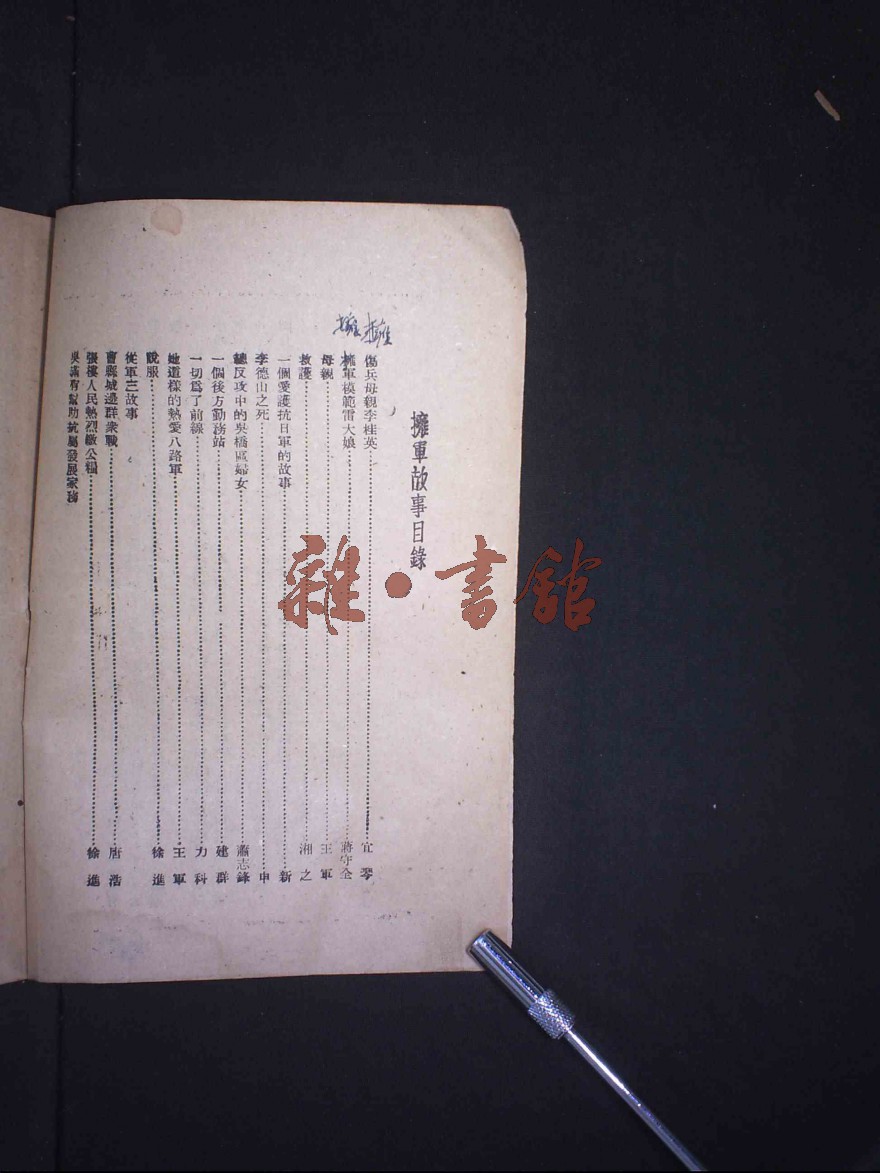 擁軍故事目錄
擁 擁
傷兵母親李桂英……宜 琴
擁軍模範雷大娘……蔣守全
母親……王 軍
救護……湘 之
一個愛護抗日軍的故事……新
李德山之死……申
總反攻中的吳橋區婦女……蕭志鋒
一個後方勤務站……建 群
一切爲了前線……力 科
她這樣的熱愛八路軍……王 軍
說服……徐 進
從軍三故事
曹縣城邊群衆戰……唐 浩
張樓人民熱烈繳公糧……徐 進
吳滿有幫助抗屬發展家務
雜·書館